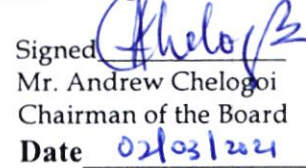 Signed
Mr. Andrew Chelogoi
Chairman of the Board
Date 02/03/2021